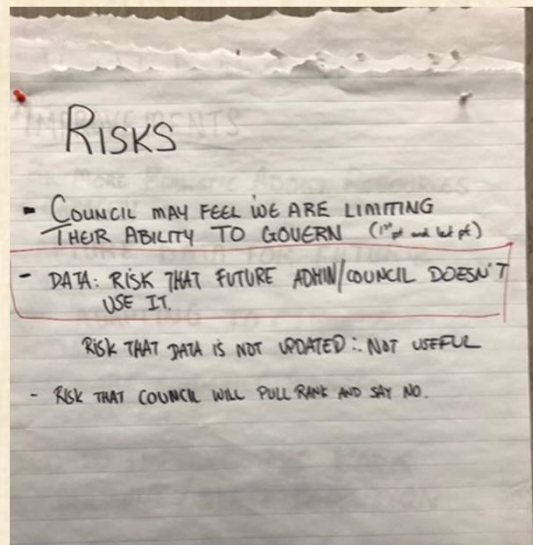 RISKS
- COUNCIL MAY FEEL WE ARE LIMITING
THEIR ABILITY TO GOVERN (1st pt and last pt)
- DATA: RISK THAT FUTURE ADMIN/COUNCIL DOESN'T
USE IT.
RISK THAT DATA IS NOT UPDATED ∴ NOT USEFUL
- RISK THAT COUNCIL WILL PULL RANK AND SAY NO.